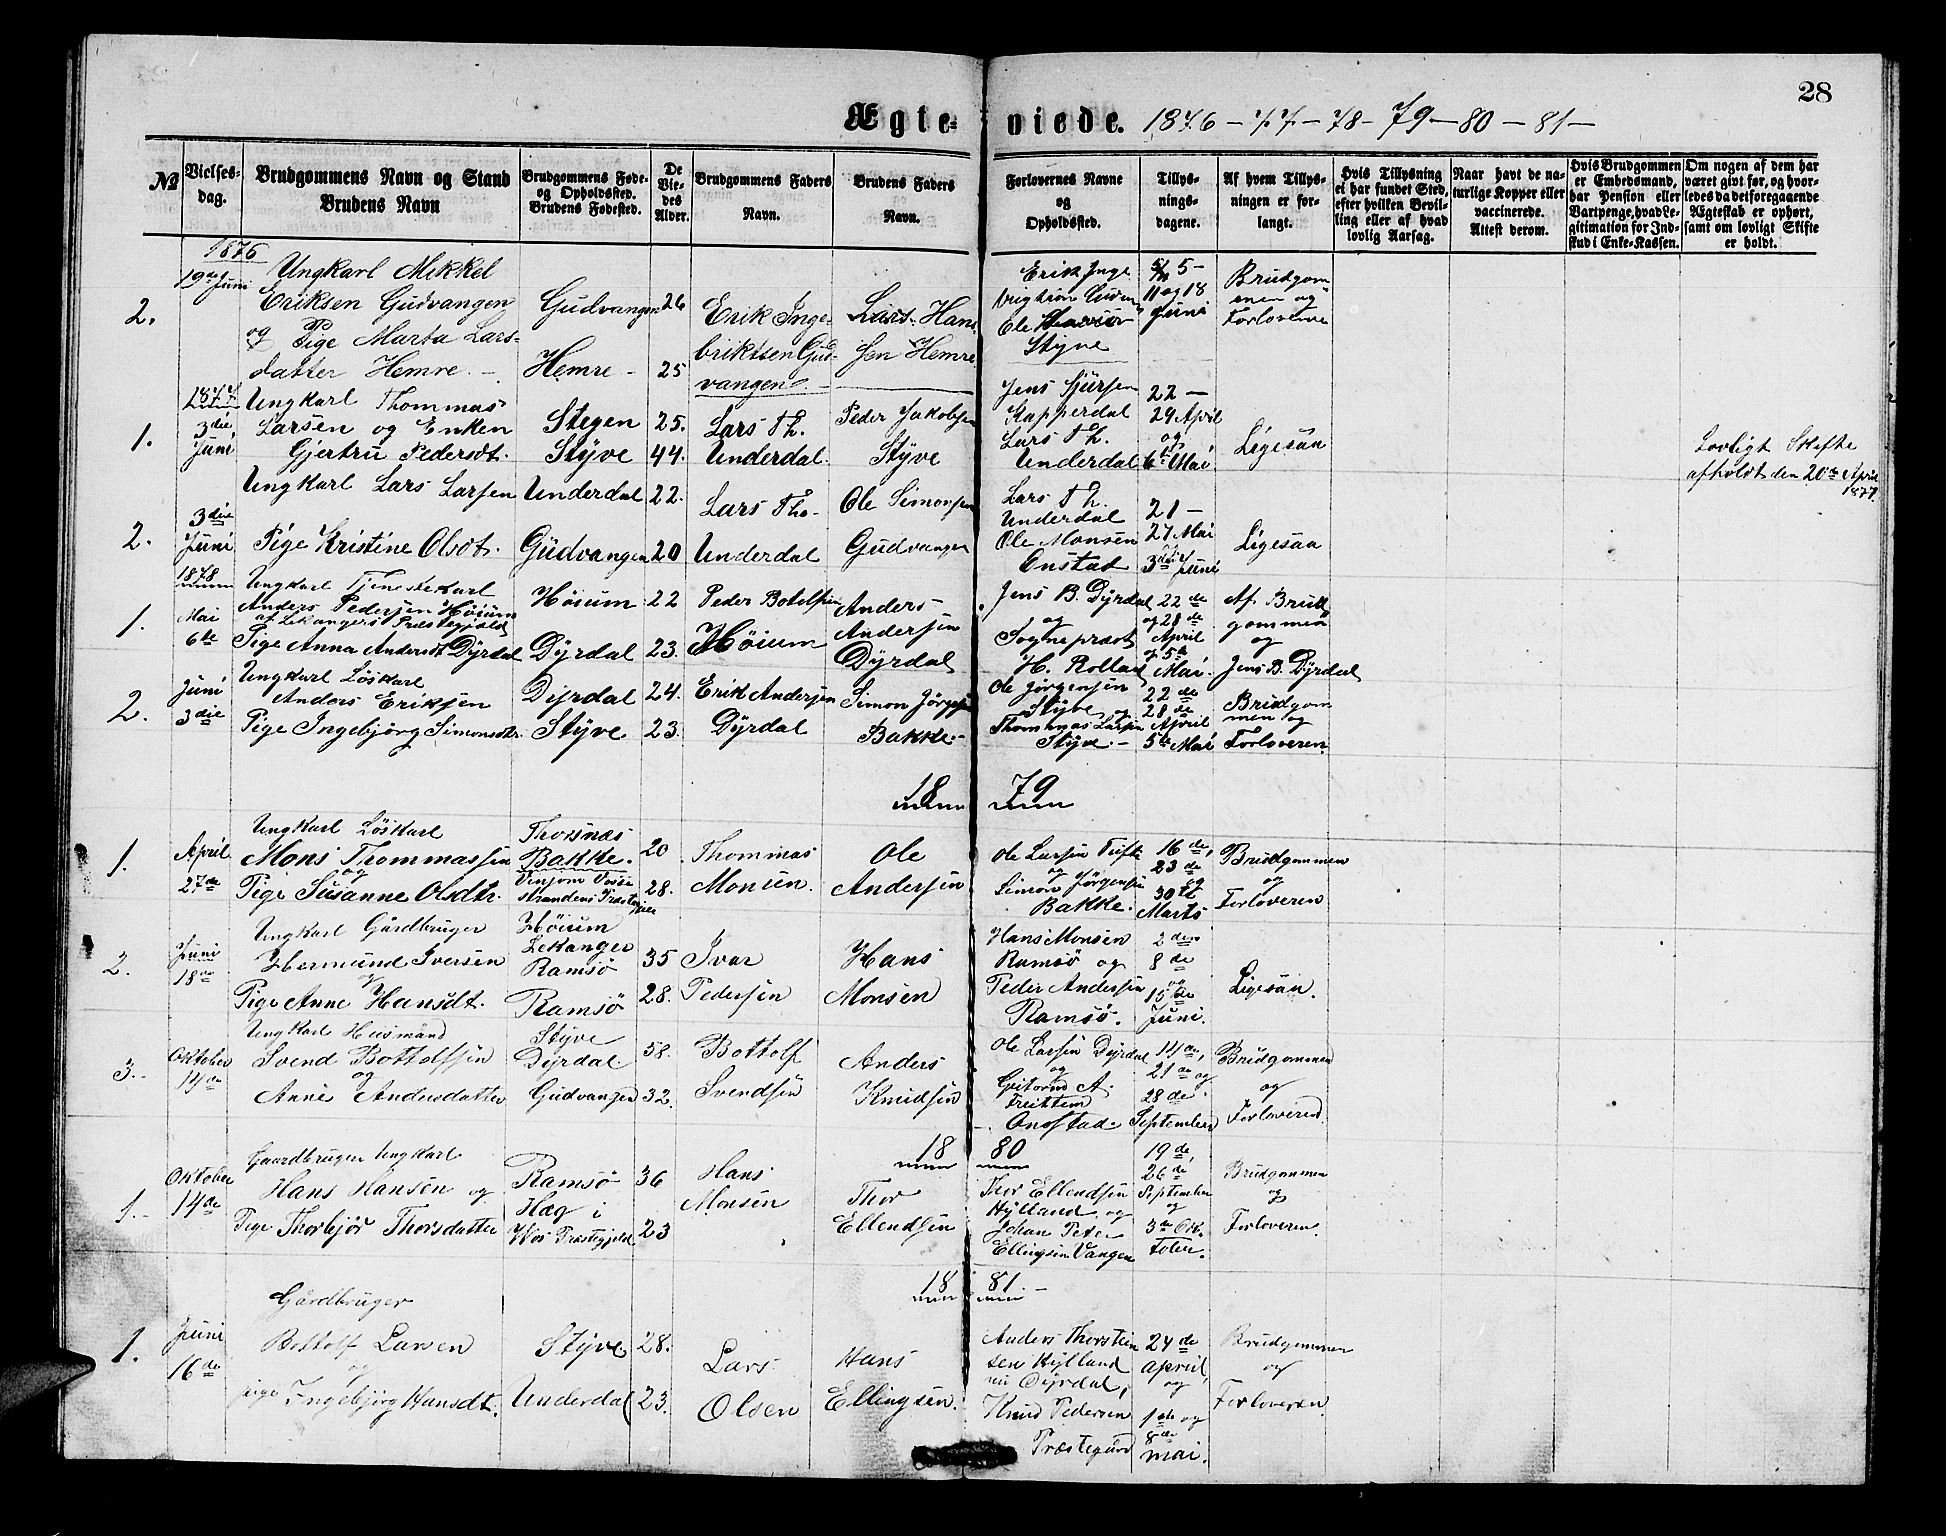 28
Ægteviede. 1876 – 77 – 78 – 79 – 80 – 81 –
№
Vielses-
dag.
Brudgommens Navn og Stand
Brudens Navn
Brudgommens Føde-
og Opholdssted.
Brudens Fødested.
De
Vie-
des
Alder.
Brudgommens Faders
Navn.
Brudens Faders
Navn.
Forlovernes Navne
og
Opholdssted.
Tillys-
nings-
dagene.
Af hvem Tillys-
ningen er for-
langt.
Hvis Tillysning
ei har fundet Sted,
efter hvilken Bevil-
ling eller af hvad
lovlig Aarsag.
Naar havt de na-
turlige Kopper eller
vaccinerede.
Attest derom.
Hvis Brudgommen
er Embedsmand,
har Pension eller
Vartpenge, hvad Le-
gitimation for Ind-
skud i Enke-Kassen.
Om nogen af dem har
været givt før, og hvor-
ledes da det foregaaende
Ægteskab er ophørt,
samt om lovligt Skifte
er holdt.
1876
2.
19de Juni
Ungkarl Mikkel
Eriksen Gudvangen
og Pige Marta Lars-
datter Hemre. –
Gudvangen
Hemre –
26
25
Erik Inge-
briktsen Gud-
vangen. –
Lars Han-
sen Hemre
Erik Inge
Ole
Styve
5 –
11 og 18
Juni
Brudgom-
men og
Forloverne
1877
1.
3die
Juni
Ungkarl Thommas
Larsen og Enken
Gjertru Pedersdt.
Stegen
Styve
25.
44.
Lars Th.
Underdal.
Peder Jakobsen
Styve
Jens Sjursen
Kapperdal
Lars Th.
Underdal
22 –
29 April
og
6te Mai
Ligesaa
Lovligt Skifte
afholdt den 20de April
1877.
2.
3die
Juni
Ungkarl Lars Larsen
Pige Kristine Olsdt.
Underdal
Gudvangen
22.
20
Lars Th.
Underdal
Ole Simonsen
Gudvangen
Lars Th.
Underdal
Ole Monsen
Onstad
21 –
27 Mai
og
3die Juni
Ligesaa
1878
1.
Mai
6te
Ungkarl Tjenestekarl
Anders Pedersen Høium
af Lekangers Præstegjæld
Pige Anna Andersdt Dyrdal
Høium
Dyrdal
22
23.
Peder Botolfsen
Høium
Anders
Andersen
Dyrdal
Jens B. Dyrdal
og
Sognepræst
H. Rollad
22de
og 28de
April
og 5te
Mai.
Af Brud
gommen
og
Jens B. Dyrdal
2.
Juni
3die
Ungkarl Løskarl
Anders Eriksen
Pige Ingebjørg Simonsdt.
Dyrdal
Styve
24.
23.
Erik Andersen
Dyrdal
Simon Jørgensen
Bakke. –
Ole Jørgensen
Styve og
Thommas Larsen
Styve. –
22de
28de
April
5te Mai
Brudgom
men og
Forloveren.
18 79
1.
April
27de
Ungkarl Løskarl
Mons Thommassen
og
Pige Susanne Olsdtr.
Thorsnæs
Bakke.
Vinjom Vosse
strandens Præstegjæld
20
28.
Thommas
Monsen.
Ole
Andersen
Ole Larsen Tufte
og
Simon Jørgensen
Bakke.
16de,
23de
og
30te
Marts
Brudgommen
og
Forloveren
2.
Juni
18de
Ungkarl Gårdbruger
Hermund Iversen
og
Pige Anne Hansdt.
Høium
Lekanger
Ramsø
Ramsø
35
28.
Ivar
Pedersen
Hans
Monsen
Hans Monsen
Ramsø og
Peder Andersen
Ramsø.
2den
8de
og
15de
Juni.
Ligesaa.
3.
Oktober
14de
Ungkarl Husmand
Svend Bottolfsen
og
Anni Andersdatter
Styve
Dyrdal
Gudvangen
58.
32.
Bottolf
Svendsen
Anders
Knudsen
Ole Larsen Dyrdal
og
A.
Freittem
Onstad.
14de,
21de og
28de.
September
Brudgommen
og
Forloveren.
18 80
1.
Oktober
14de
Gaardbruger Ungkarl
Hans Hansen og
Pige Thorbjør Thorsdatter
Ramsø
Hæg i
Vos Præstegjeld
36
23
Hans
Monsen
Thor
Ellendsen
Thor Ellendsen
Hylland og
Johan Peter
Ellingsen Vangen
19de,
26de
September
og
3de Ok-
tober.
Brudgommen
og
Forloveren.
18 81 –
1.
Juni
16de
Gårdbruger
Bottolf Larsen
og
pige Ingebjørg Hansdt.
Styve
Underdal
28.
23.
Lars
Olsen
Hans
Ellingsen.
Anders Thorstein
sen Hylland
nu Dyrdal,
Knud Pedersen
Præstegård
24de
April,
og
1ste og
8de
mai.
Brudgommen
og
Forloveren.